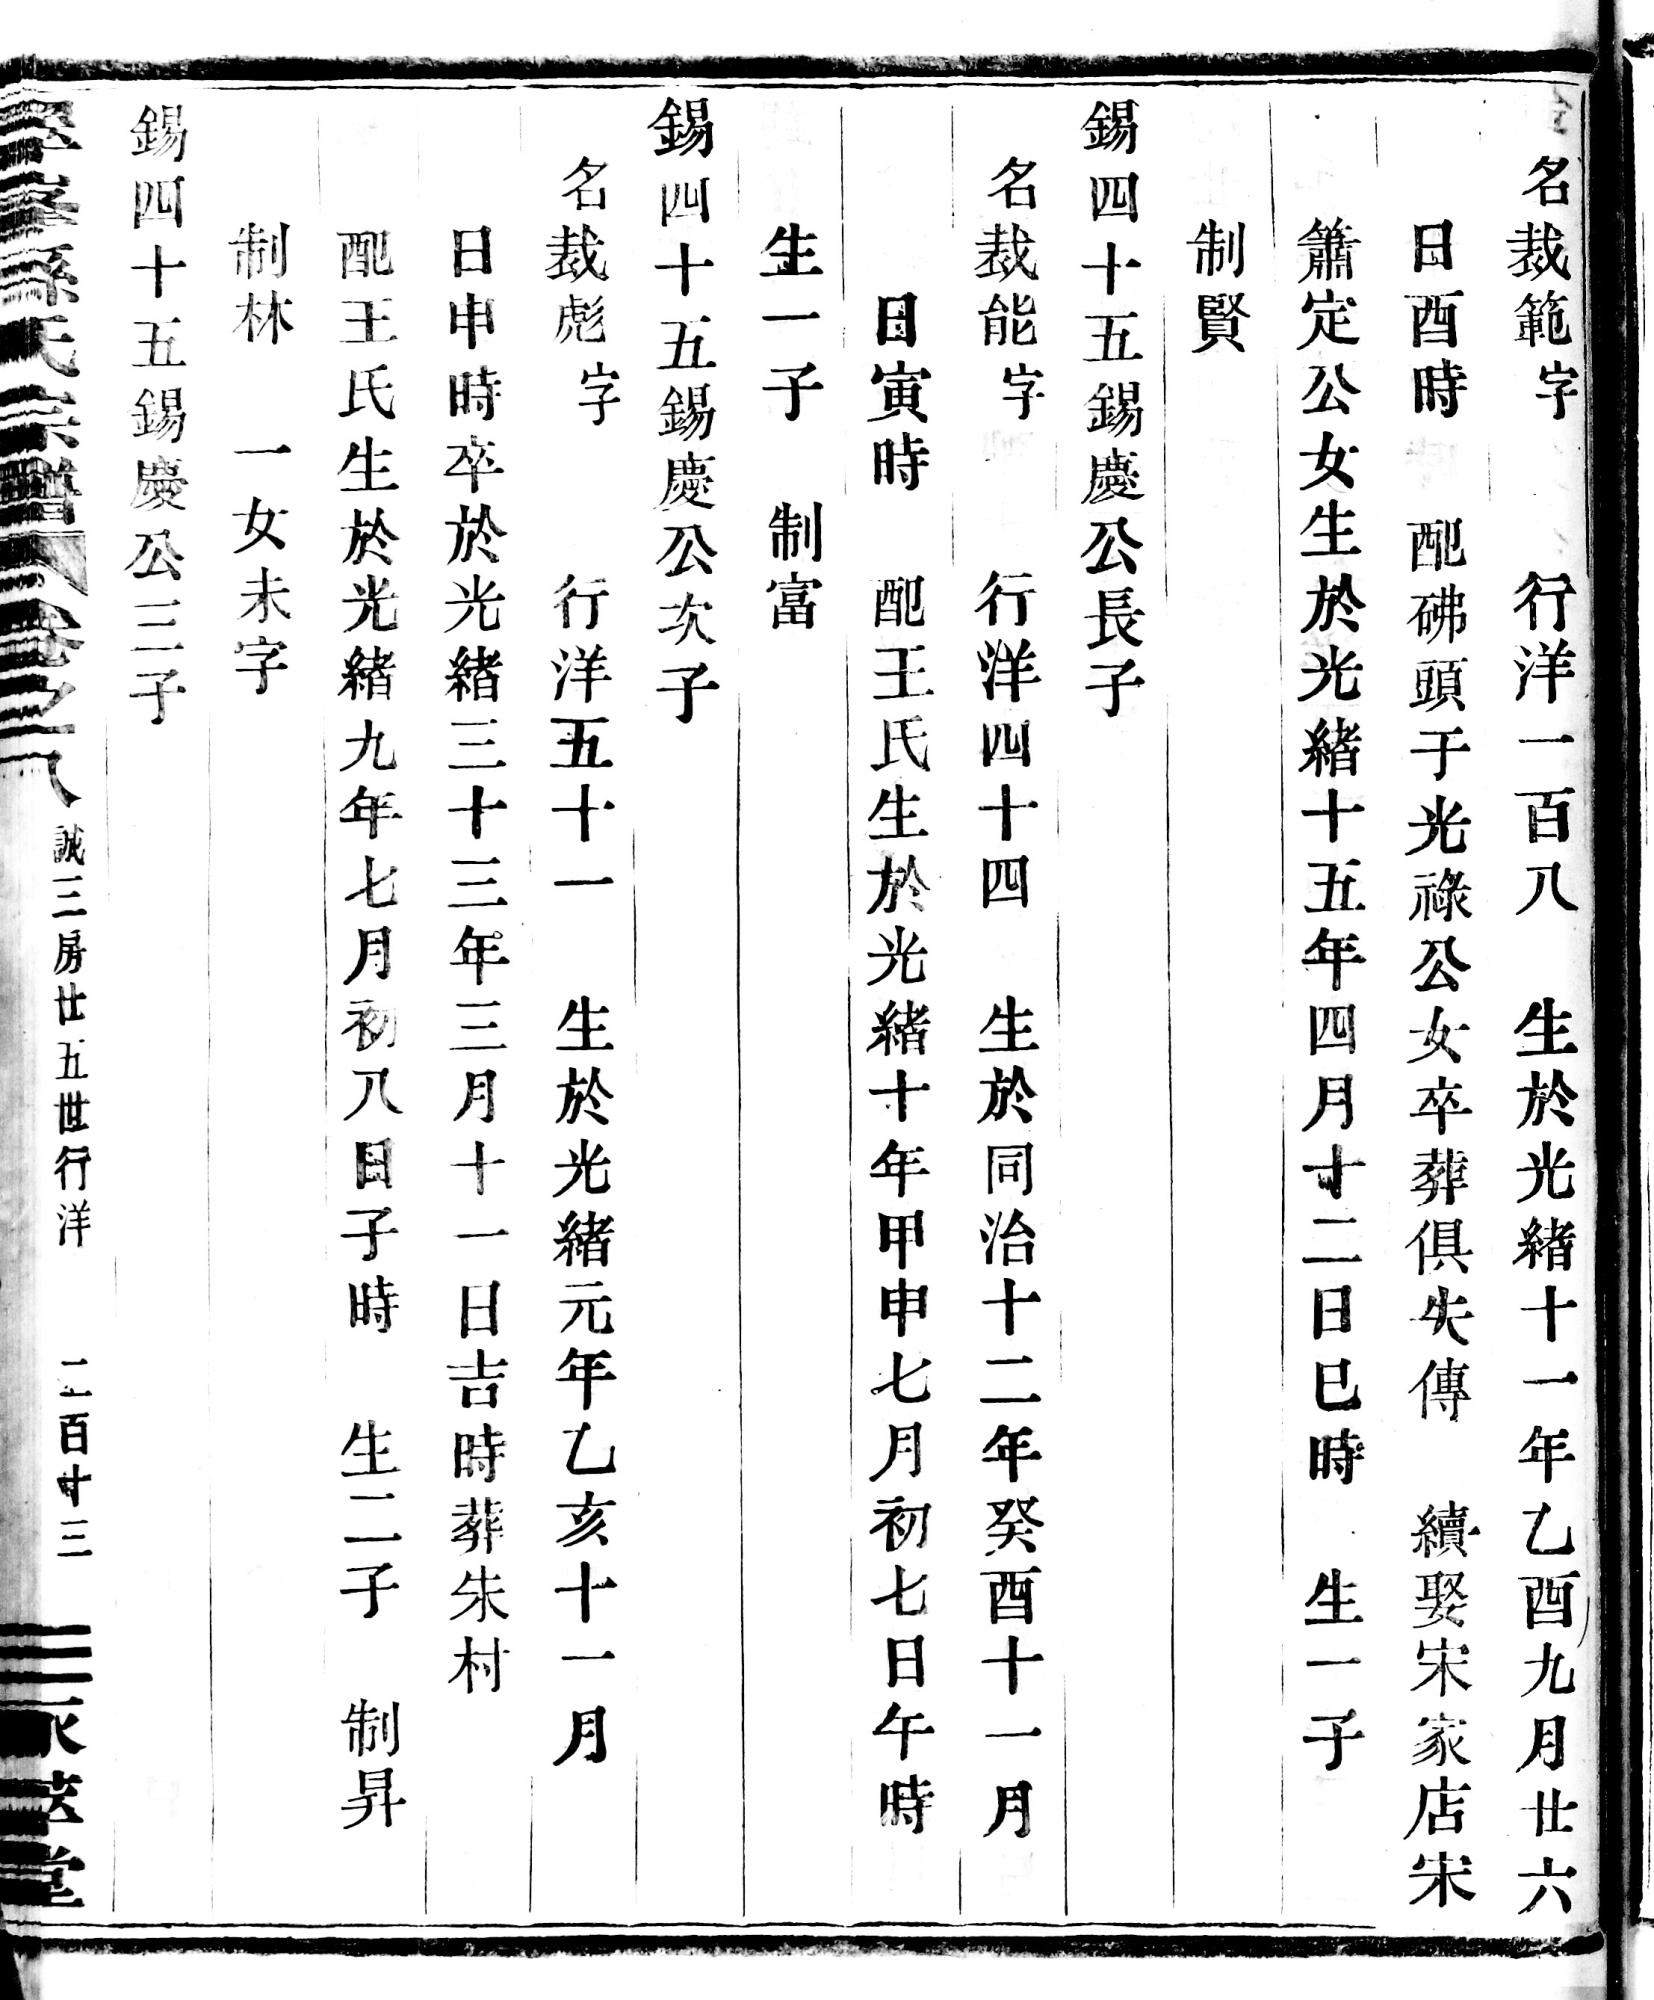 名裁範字　行洋一百八　生於光緒十一年乙酉九月廿六
日酉時　配硑頭于光祿公女卒葬俱失傳　續娶宋家店宋
簫定公女生於光緒十五年四月十二日巳時　生一子
制賢
錫四十五錫慶公長子
名裁能字　行洋四十四　生於同治十二年癸酉十一月
日寅時　配王氏生於光緒十年甲申七月初七日午時
生一子　制富
錫四十五錫慶公次子
名裁彪字　行洋五十一　生於光緒元年乙亥十一月
日申時卒於光緒三十三年三月十一日吉時葬朱村
配王氏生於光緒九年七月初八日子時　生二子　制昇
制林　一女未字
錫四十五錫慶公三子
孫氏宗譜　卷之八　誠三房廿五世行洋　二百十三　萃堂